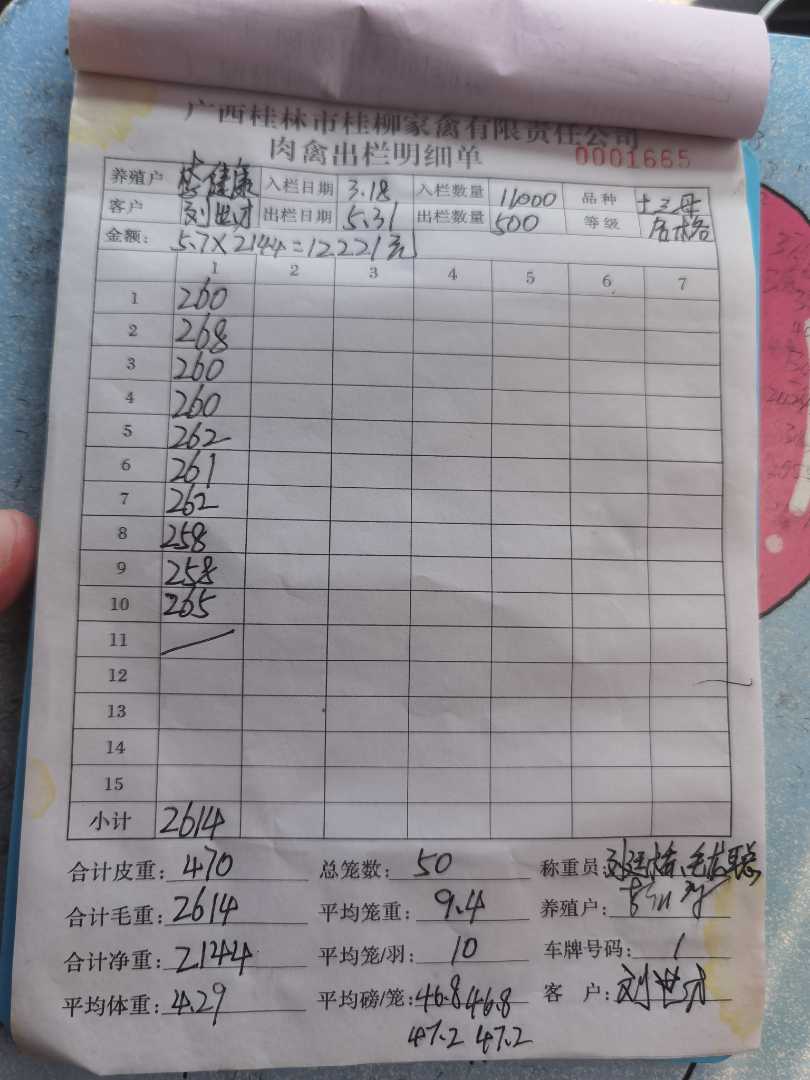 广西桂林市桂柳家禽有限责任公司
肉禽出栏明细单 0001665
养殖户 健康 入栏日期 3.18 入栏数量 11000 品种 土三母
客户 刘世才 出栏日期 5.31 出栏数量 500 等级 合格
金额: 5.7×2144=12221元
1 2 3 4 5 6 7
1 260
2 268
3 260
4 260
5 262
6 261
7 262
8 258
9 258
10 265
11
12
13
14
15
小计 2614
合计皮重: 470 总笼数: 50 称重员:
合计毛重: 2614 平均笼重: 9.4 养殖户:
合计净重: 2144 平均笼/羽: 10 车牌号码: 1
平均体重: 4.29 平均磅/笼: 46.8 46.8 客 户: 刘世才
47.2 47.2